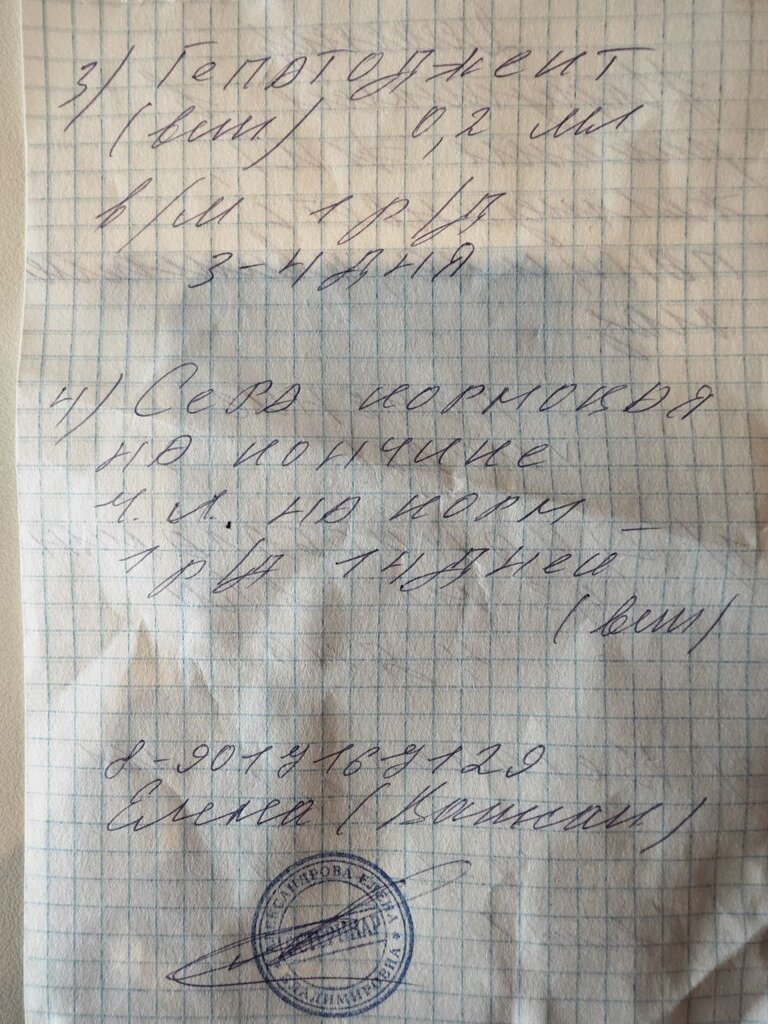 3) Гепатоджект
(вет) 0,2 мл
в/м 1 р/д
3-4 дня
4) Сера кормовая
на кончике
ч.л. на корм
1 р/д 14 дней
(вет)
8-9017167129
Елена
АЛЕКСАНДРОВА ЕЛЕНА
ВЛАДИМИРОВНА
ВЕТЕРИНАР